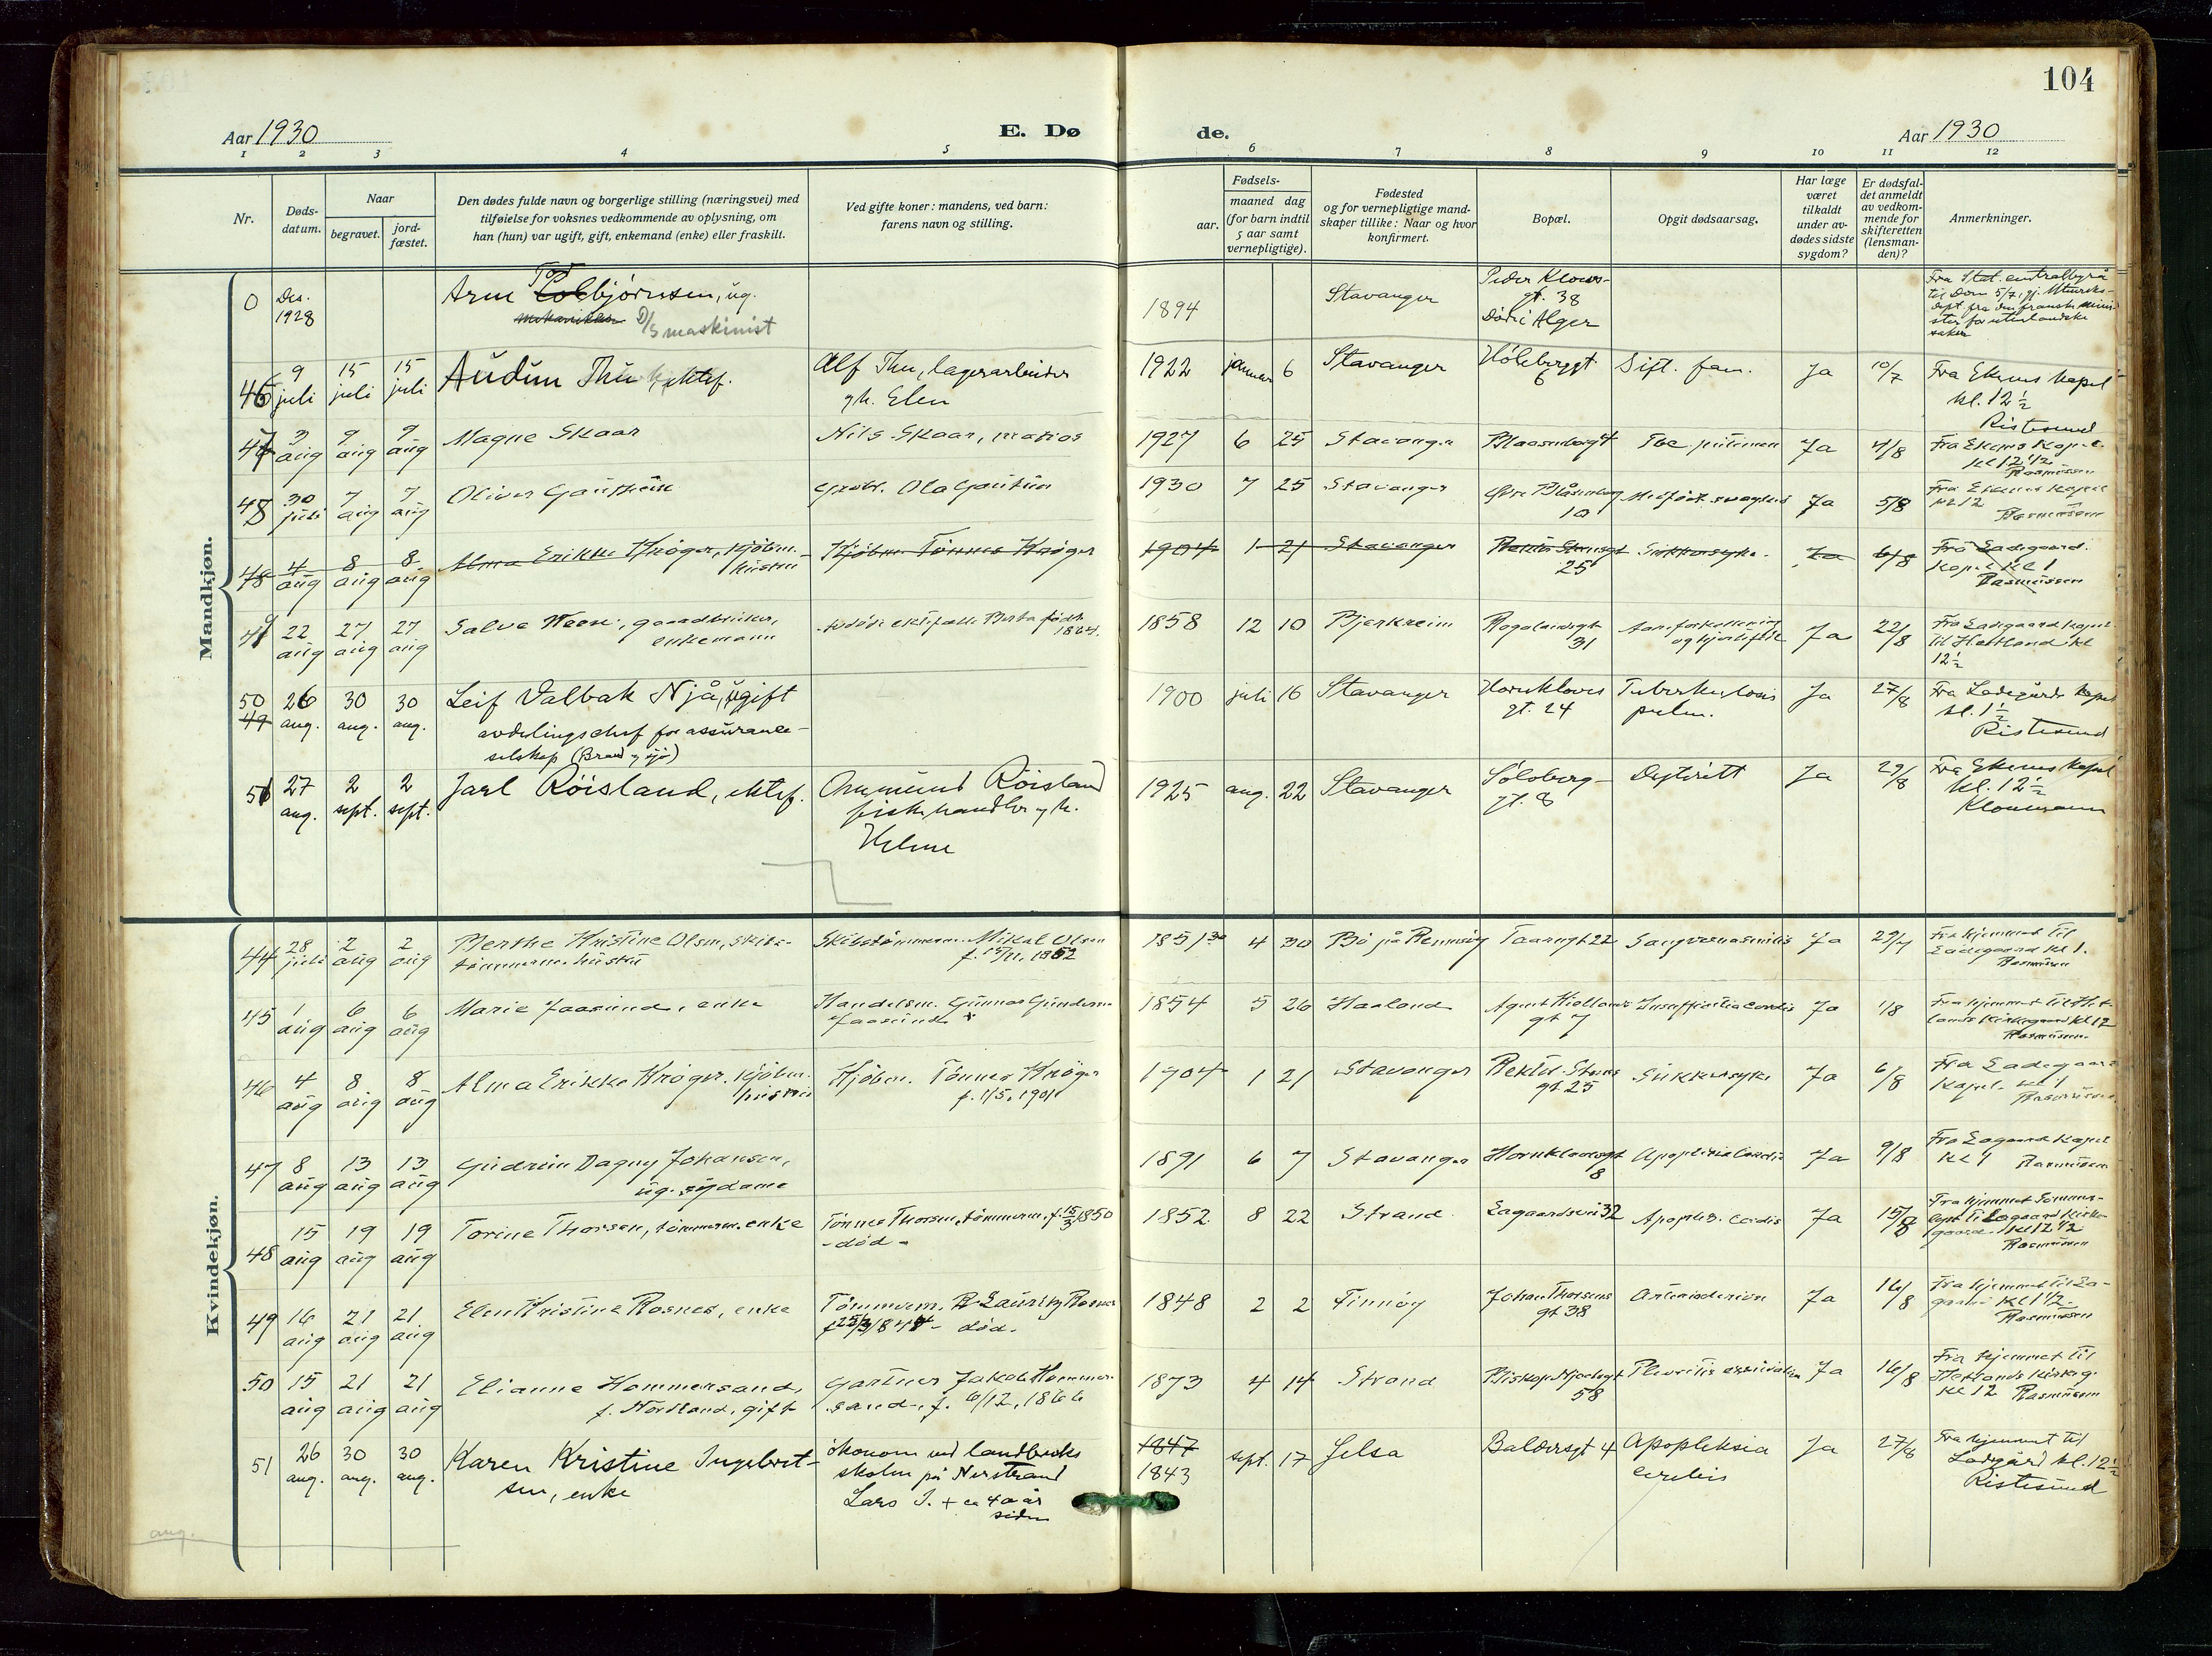 104
Aar 1930
E. Dø
de.
Aar 1930
1 2 3 4 5 6 7 8 9 10 11 12
Nr.
Døds-
datum.
Naar
begravet.
jord-
fæstet.
Den dødes fulde navn og borgerlige stilling (næringsvei) med
tilføielse for voksnes vedkommende av oplysning, om
han (hun) var ugift, gift, enkemand (enke) eller fraskilt.
Ved gifte koner: mandens, ved barn:
farens navn og stilling.
Fødsels-
aar.
maaned dag
(for barn indtil
5 aar samt
vernepligtige).
Fødested
og for vernepligtige mand-
skaper tillike: Naar og hvor
konfirmert.
Bopæl.
Opgit dødsaarsag.
Har læge
været
tilkaldt
under av-
dødes sidste
sygdom?
Er dødsfal-
det anmeldt
av vedkom-
mende for
skifteretten
(lensman-
den)?
Anmerkninger.
Mandkjøn.
0 Des. 1928
Arne Torbjørnsen, ug.
mekaniker D/S maskinist
1894 Stavanger
gt. 38
Død i Alger
46 9 juli 15 juli 15 juli
Audun Thu, ektef.
Alf Thu, lagerarbeider
og h. Elen
1922 januar 6 Stavanger
6
Ja 10/7
Fra Ekenes kapel
kl. 12 ½
Ristesund
47 3 aug 9 aug 9 aug
Magne Skaar
Nils Skaar, matros
1927 6 25 Stavanger
Ja 4/8
Fra Ekenes Kapel
kl 12 1/2
Rasmussen
48 30 juli 7 aug 7 aug
Oliver Gautun
Ola Gautun
1930 7 25 Stavanger
10
Ja 5/8
Fra Ekenes Kapel
kl 12
Rasmussen
48 4 aug 8 aug 8 aug
Alma Erikke Krøger, kjøbm.
hustru
Kjøbm. Tønnes Krøger
1904 1 21 Stavanger
25
Sukkersyke. Ja 6/8
Fra Ladegaard.
Kapel kl 1
Rasmussen
49 22 aug 27 aug 27 aug
Salve gaardbruker,
enkemann
1858 12 10 Bjerkreim
Rogalandsgt
31
Aareforkalkning
og hjertefeil
Ja 22/8
Fra Ladegaard kapel
til Hetland kl
12 ½
50 49 26 aug. 30 aug. 30 aug.
Leif Valbak Njå, ugift
avdelingschef for assurance-
selskap (Brand og sjø)
1900 juli 16 Stavanger
Hornkloves
gt. 24
Tuberkulosis
pulm.
Ja 27/8
Fra Ladegårds kapel
kl. 1 ½
Ristesund
51 27 aug. 2 sept. 2 sept.
Jarl Röisland, ektef.
Anmund Röisland
fiskehandler og h.
Helene
1925 aug. 22 Stavanger
Söloberg-
gt. 8
Ja 29/8
Fra Ekenes kapel
kl. 12 ½
Kvindekjøn.
44 28 juli 2 aug 2 aug
Berthe Kristine Olsen, skibs-
tømmerm. hustru
Skibstømmerm. Mikal Olsen
f. 15/11, 1852
1851 4 30 Bø på Rennesøy
Taarngt 22
Ja 29/7
Fra hjemmet til
Ladegaard kl 1.
Rasmussen
45 1 aug 6 aug 6 aug
Marie Jaasund, enke
Handelsm. Gunnar Gundersen
Jaasund
1854 5 26 Haaland
gt 7
Insufficientia cordis Ja 1/8
Fra hjemmet til Het-
lands Kirkegaard kl 12
Rasmussen
46 4 aug 8 aug 8 aug
Alma Erikke Krøger. Kjøbm.
hustru
Kjøbm. Tønnes Krøger
f. 1/5, 1901
1904 1 21 Stavanger
gt 25
Sukkersyke Ja 6/8
Fra Ladegaard
Kapel kl 1
Rasmussen
47 8 aug 13 aug 13 aug
Gudrun Dagny Johansen,
ug. sydame
1891 6 7 Stavanger
Hornklovesgt
8
Ja 9/8
Fra Lagaard Kapel
kl 1 Rasmussen
48 15 aug 19 aug 19 aug
Torine Thorsen, tømmerm. enke
Tønnes Thorsen, tømmerm. f. 15/3 1850
- død -
1852 8 22 Strand
Lagaardsvei 32
Ja 15/8
Fra hjemmet
til Lagaard Kirke-
gaard. kl 12 1/2
Rasmussen
49 16 aug 21 aug 21 aug
Elen Kristine Rosnes, enke
Tømmerm. Lauritz Rosnes
død.
1848 2 2 Finnöy
Johan Thorsens
gt 38
Ja 16/8
Fra hjemmet til La-
gaard kl 1 1/2
Rasmussen
50 15 aug 21 aug 21 aug
Elianne Hommersand,
f. Nordland, gift
Gartner Jakob Hommer-
sand, f. 6/12, 1866
1873 4 14 Strand
58
Ja 16/8
Fra hjemmet til
Hetlands Kirkeg.
kl 12 Rasmussen
51 26 aug. 30 aug. 30 aug.
Karen Kristine Ingebret-
sen, enke
økonom ved landbruks
skolen på Nerstrand
Lars I. + ca 40 år
siden
1847
1843 sept. 17 Jelsa
Baldersgt 4
Apopleksia
Ja 27/8
Fra hjemmet til
Ladegård kl. 12 ½
Ristesund
aug.